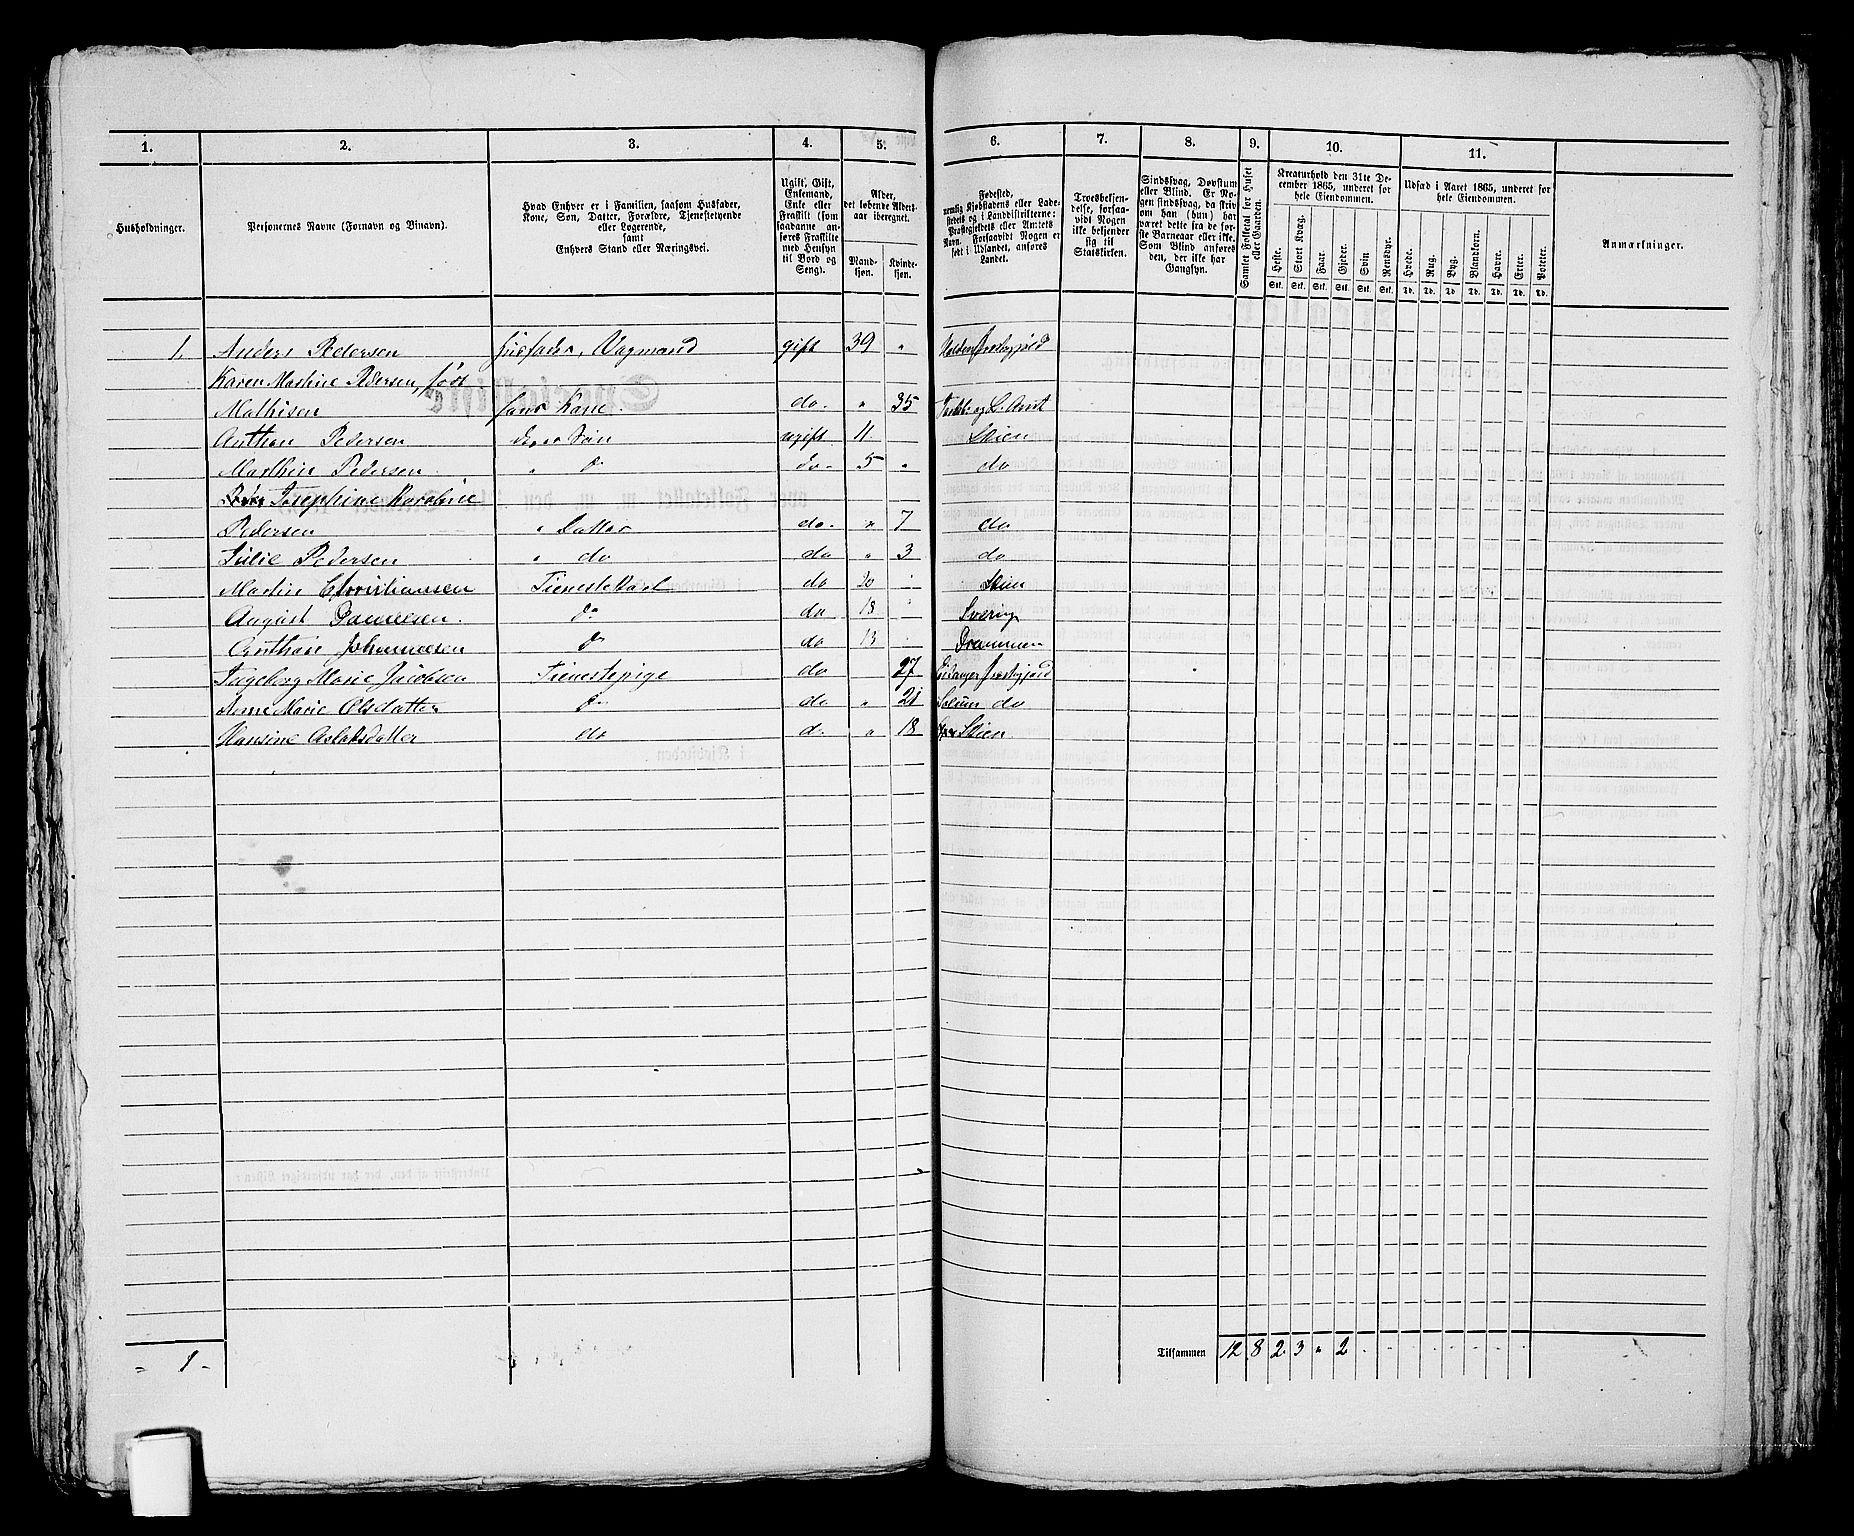 1. 2. 3. 4. 5. 6. 7. 8. 9. 10. 11.
Husholdninger.
Personernes Navne (Fornavn og Binavn).
Hvad Enhver er i Familien, saasom Husfader,
Kone, Søn, Datter, Forældre, Tjenestetyende
eller Logerende,
samt
Enhvers Stand eller Næringsvei.
Ugift, Gift,
Enkemand,
Enke eller
Fraskilt (som
saadanne an-
føres Fraskilte
med Hensyn
til Bord og
Seng).
Alder,
det løbende Alders-
aar iberegnet.
Mand-
kjøn.
Kvinde-
kjøn.
Fødested,
nemlig Kjøbstadens eller Lade-
stedets og i Landdistrikterne:
Præstegjeldets eller Amtets
Navn. Forsaavidt Nogen er
født i Udlandet, anføres
Landet.
Troesbekjen-
delse, forsaa-
vidt Nogen
ikke bekjender
sig til
Statskirken.
Sindssvag, Døvstum
eller Blind. Er No-
gen sindssvag, da skriv
om han (hun) har
været dette fra de før-
ste Barneaar eller ikke.
Som Blind anføres
den, der ikke har
Gangsyn.
Samlet Folketal for Huset
eller Gaarden.
Kreaturhold den 31te De-
cember 1865, underet for
hele Eiendommen.
Heste. Stort Kvæg. Faar. Gjeder. Svin Rensdyr.
Stk. Stk. Stk. Stk. Stk. Stk.
Udsæd i Aaret 1865, underet for
hele Eiendommen.
Hvede. Rug. Byg. Blandkorn. Havre. Erter. Poteter.
Td. Td. Td. Td. Td. Td. Td.
Anmærkninger.
1. Anders Pedersen Husfader, Vognmand gift 39 " Holden Præstegjeld
Karen Martine Pedersen, født
Mathisen hans Kone. do. " 35 Amt
Anthon Pedersen Søn ugift 11. Skien
Marthin Pedersen " do do. 5 " do
Josephine Karoline
Pedersen " Datter do. " 7 do
Julie Pedersen " do do " 3 do
Martin Christiansen Tjenestekarl do 20 Skien
August Danielsen. do do 18 Sverig
Anthon Johannesen do do 13 Drammen
Ingeborg Marie Jacobsen Tjenestepige do 27 Eidanger Præstegjeld
Anne Marie Olsdatter do do " 21 Solum do
Hansine Aslaksdatter do d. " 18 Skien
- 1 - Tilsammen 12 8 2 3 " 2 - - - - - - - -